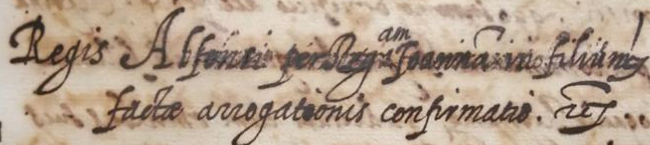 Regis Alfonsi per Regam Joannã in filiũ
factæ arrogationis confirmatio.